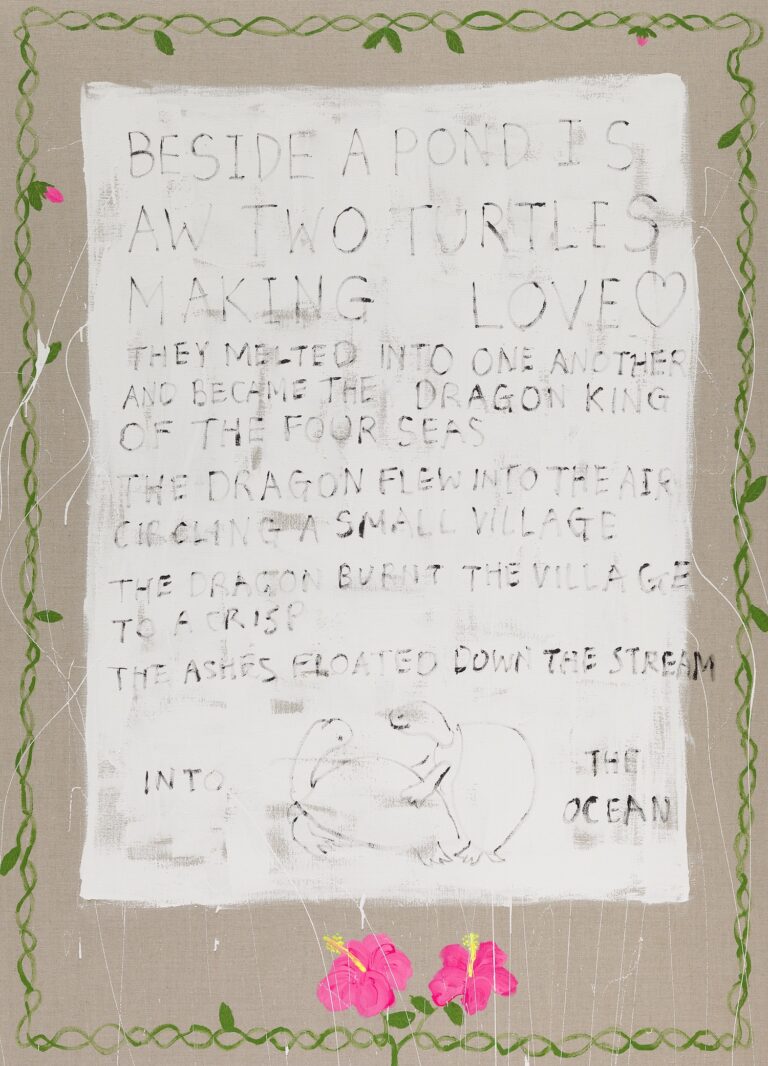 BESIDE A POND I S
AW TWO TURTLES
MAKING LOVE♡
THEY MELTED INTO ONE ANOTHER
AND BECAME THE DRAGON KING
OF THE FOUR SEAS
THE DRAGON FLEW INTO THE AIR
CIRCLING A SMALL VILLAGE
THE DRAGON BURNT THE VILLAGE
TO A CRISP
THE ASHES FLOATED DOWN THE STREAM
INTO THE
OCEAN